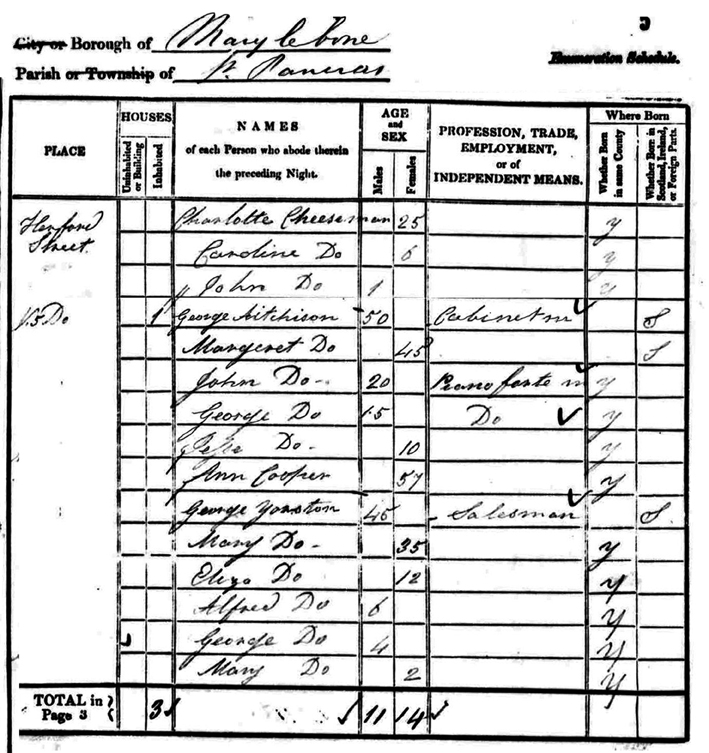 City or Borough of Mary le bone
Parish or Township of St Pancras
5
Enumeration Schedule.
PLACE
HOUSES
Uninhabited or Building
Inhabited
NAMES
of each Person who abode therein
the preceding Night.
AGE
and
SEX
Males
Females
PROFESSION, TRADE,
EMPLOYMENT,
or of
INDEPENDENT MEANS.
Where Born
Whether Born in same County
Whether Born in Scotland, Ireland, or Foreign Parts.
Street Charlotte Cheeseman 25 y
Caroline Do 6 y
John Do 1 y
Do 1 George Aitchison 50 Cabinet m S
Margeret Do 45 S
John Do 20 Pianoforte m y
George Do 15 Do y
Do 10 y
Ann Cooper 57 y
George Yorston 45 Salesman S
Mary Do 35 y
Eliza Do 12 y
Alfred Do 6 y
George Do 4 y
Mary Do 2 y
TOTAL in
Page 3
3 11 14